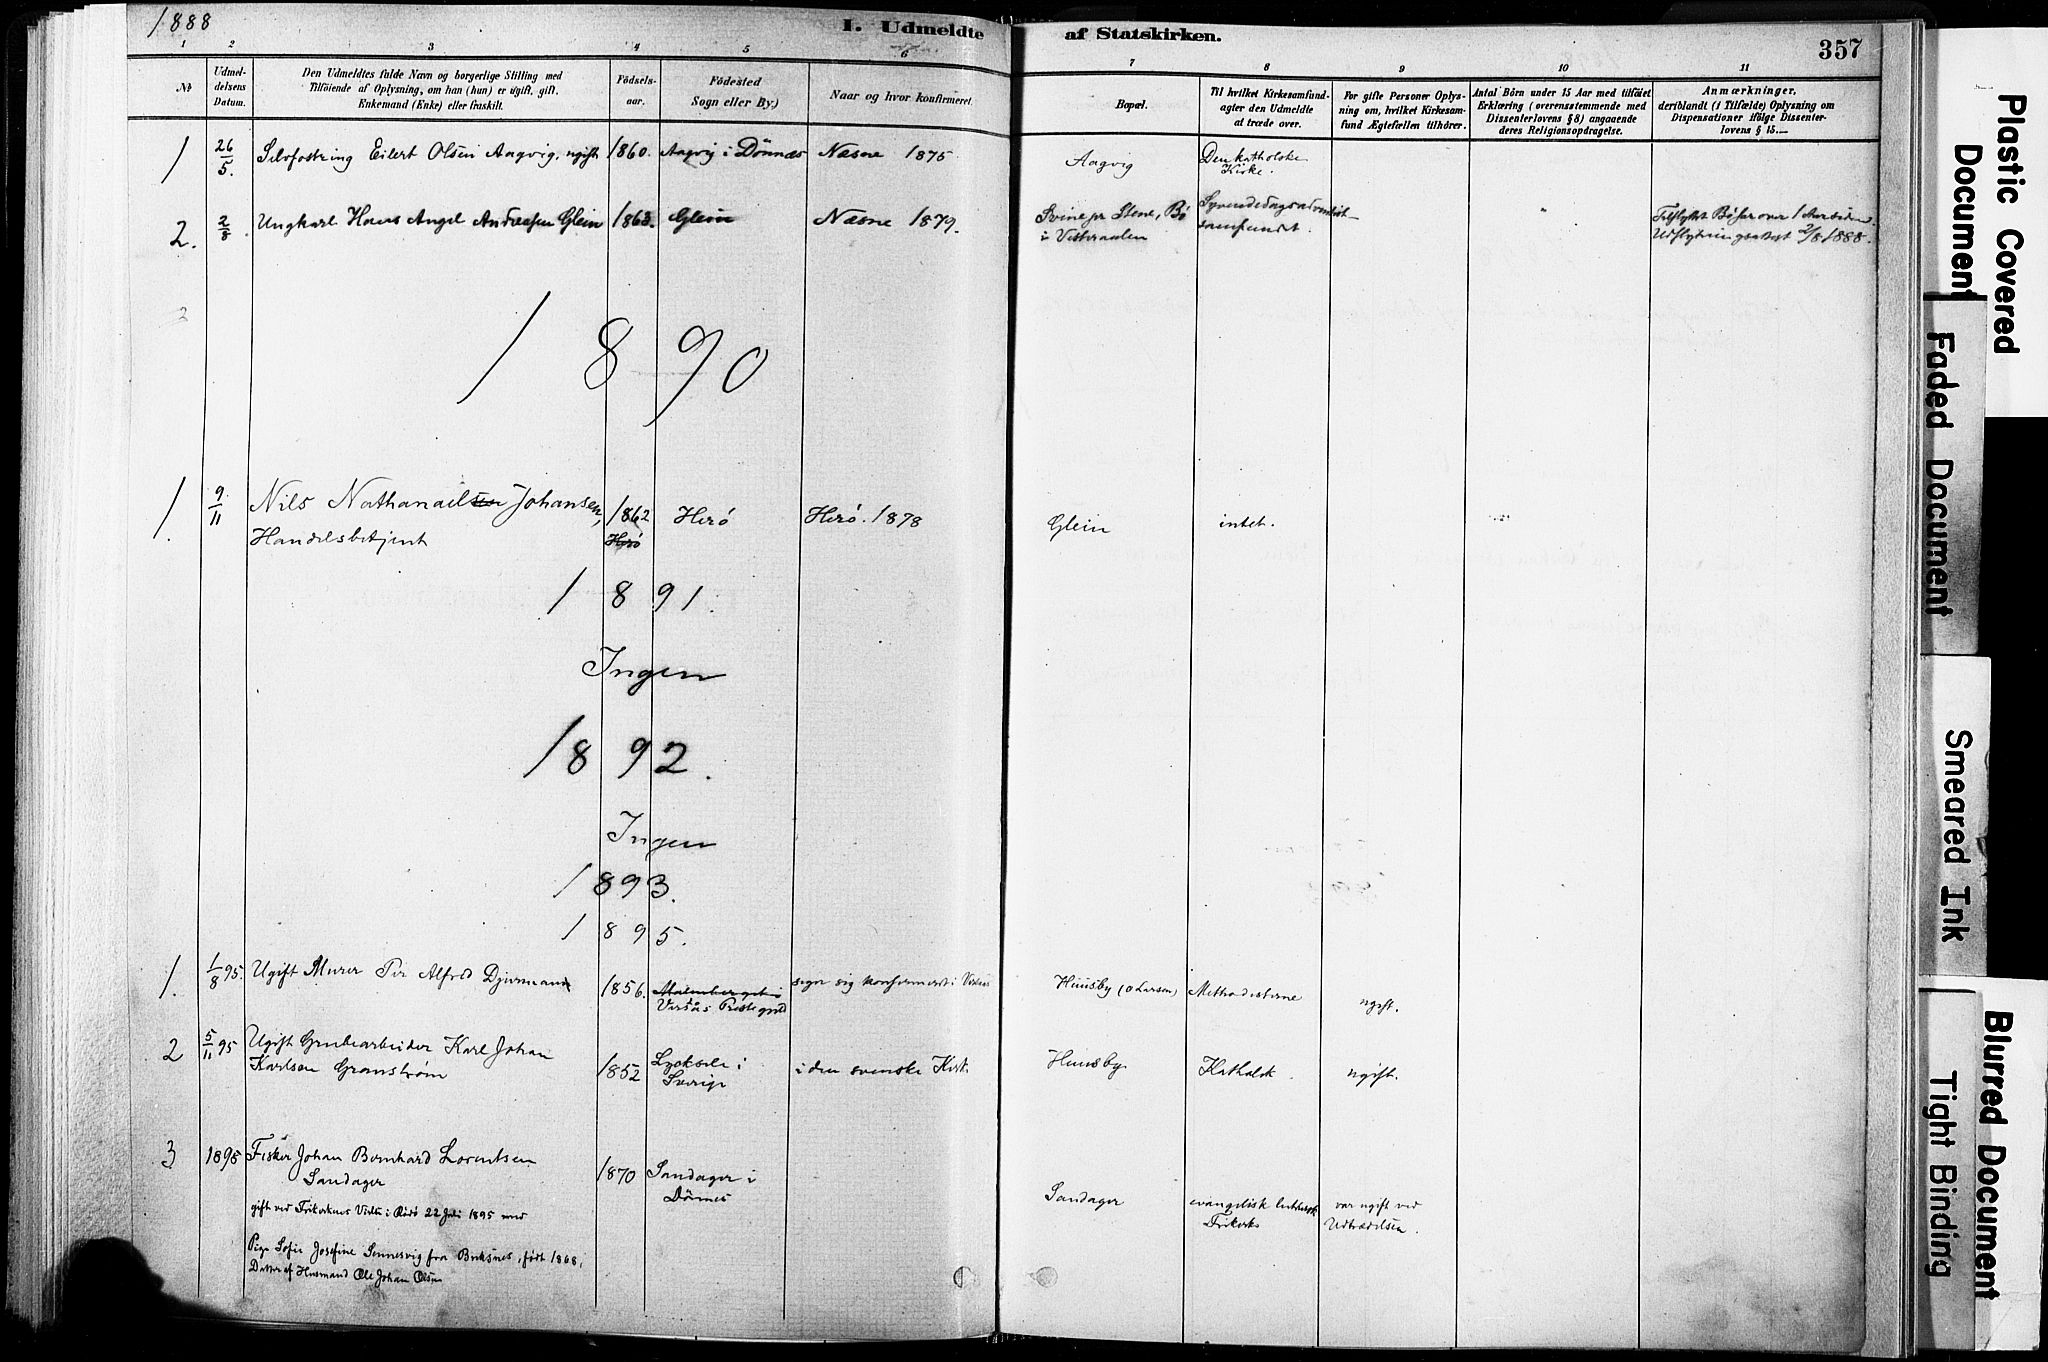 1888
I. Udmeldte af Statskirken.
357
1 2 3 4 5 6 7 8 9 10 11
№
Udmel-
delsens
Datum.
Den Udmeldtes fulde Navn og borgerlige Stilling med
Tilföiende af Oplysning, om han (hun) er ugift, gift,
Enkemand (Enke) eller fraskilt.
Födsels-
aar.
Födested
Sogn eller By.)
Naar og hvor konfirmeret.
Bopæl.
Til hvilket Kirkesamfund-
agter den Udmeldte
at træde over.
For gifte Personer Oplys-
ning om, hvilket Kirkesam-
fund Ægtefællen tilhörer.
Antal Börn under 15 Aar med tilföiet
Erklæring (overensstemmende med
Dissenterlovens § 8) angaaende
deres Religionsopdragelse.
Anmærkninger,
deriblandt (i Tilfælde) Oplysning om
Dispensationer ifölge Dissenter-
lovens § 15.—
1 26/5. Selvfostring Eilert Olsen Aagvig, ugift 1860. Aagvig i Dönnæs Næsne 1875 Aagvig Den katholske
Kirke.
2. 2/8 Ungkarl Hans Angel Andreasen Glein 1863. Glein Næsne 1879. Svine pr Stene, Bö Syvendedagsadventist-
i Vesteraalen samfundet.
Tilflyttet Bö for over 1 Aar siden.
Udflytningsattest 2/8 1888.
1890
1. 9/11 Nils Nathanael Johansen, 1862 Herö Herö. 1878 Glein intet.
Handelsbetjent Herö
1891.
Ingen
1892.
Ingen
1893.
1895.
1. 1/8 95. Ugift Murer Per Alfred Djurman 1856. siger sig konfirmeret i Huusby (O Larsen) Methodisterne ugift.
Præstegjeld
2 5/11 95 Ugift Grubearbeider Karl Johan
Karlsen Granström 1852 Lycksele i
Sverige i den svenske Kirke Huusby Katholsk. ugift.
3 1895 Fisker Johan Bernhard Lorentsen
Sandager 1870 Sandager i
Dönnes Sandager evangelisk luthersk
Frikirke var ugift ved
Udtrædelsen.
gift ved Frikirkens i Rödö 22 Juli 1895 med
Pige Sofie Josefine Sennesvig fra Buksnes, født 1868,
Datter af Husmand Ole Johan Olsen
Plastic Covered
Document
Faded Document
Smeared Ink
Blurred Document
Tight Binding